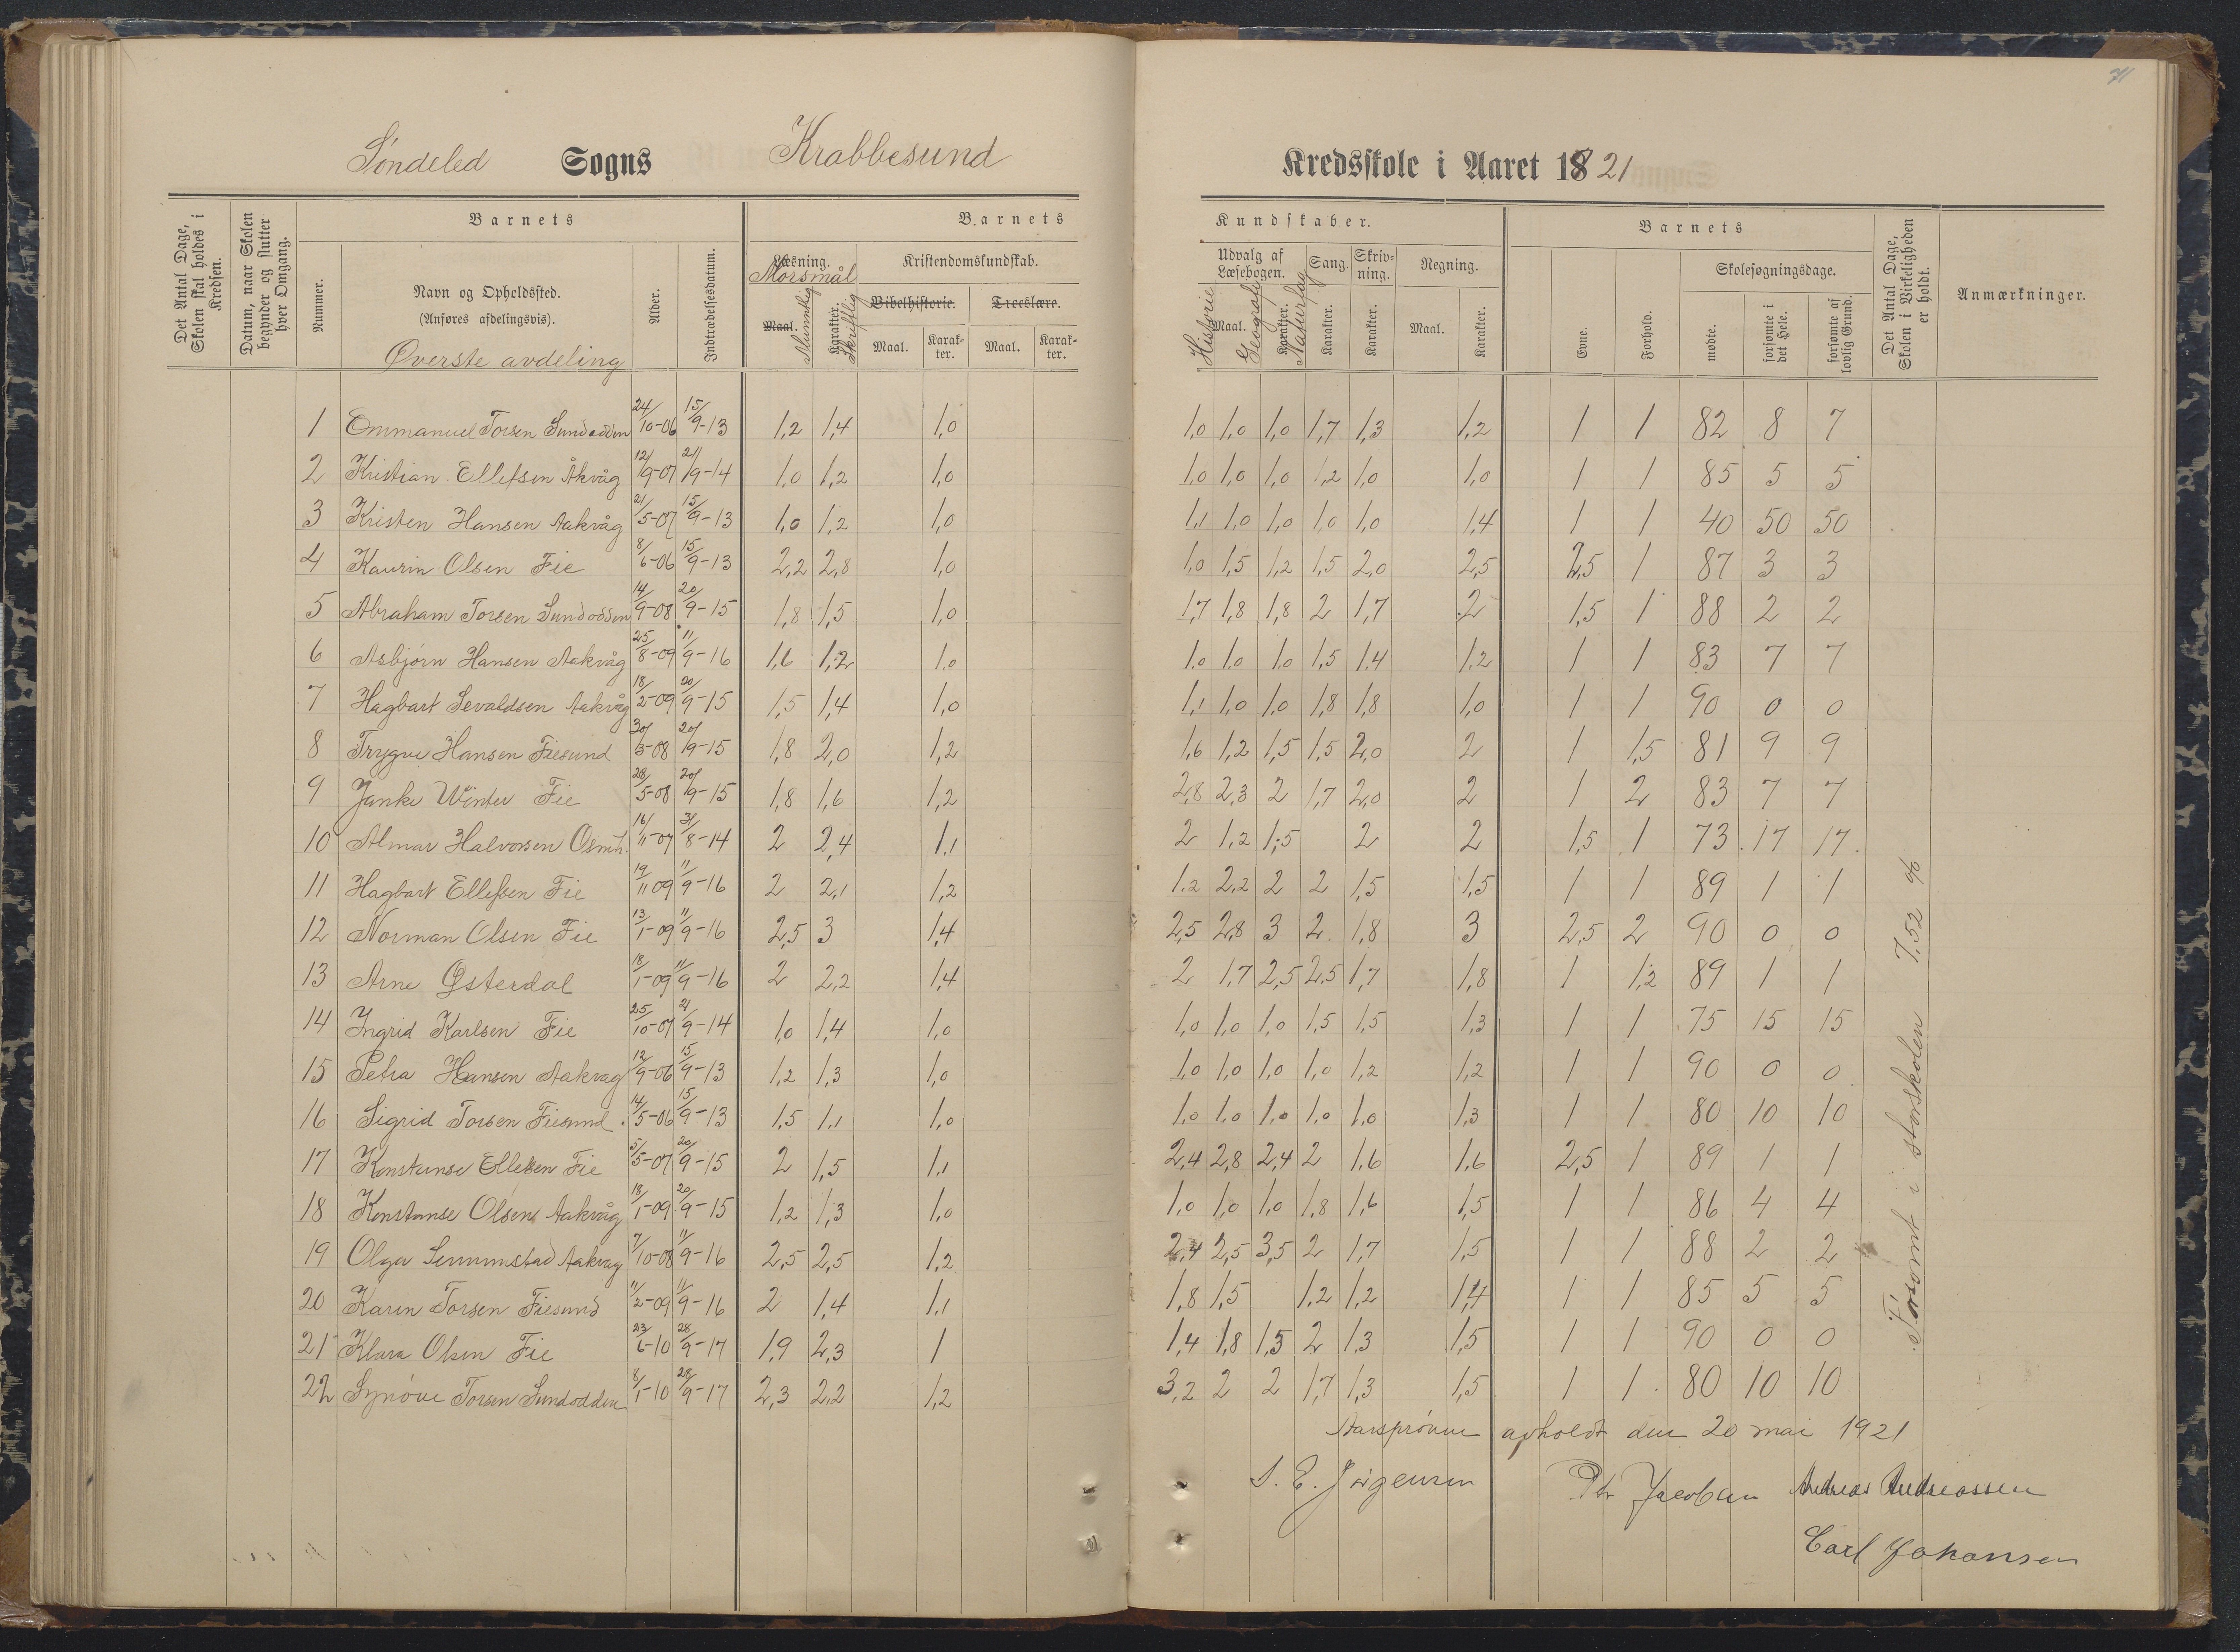 71
Søndeled Sogns Krabbesund Kredsskole i Aaret 1821
Det Antal Dage, Skolen skal holdes i Kredsen.
Datum, naar Skolen begynder og slutter hver Omgang.
Barnets
Nummer.
Navn og Opholdssted.
(Anføres afdelingsvis).
Øverste avdeling
Alder.
Indtrædelsesdatum.
Barnets
Læsning.
Morsmål
Maal.
Munntlig
Karakter.
Skriftlig
Kristendomskundskab.
Bibelhistorie.
Troeslære.
Maal.
Karakter.
Maal.
Karakter.
Kundskaber.
Udvalg af Læsebogen.
Historie
Maal.
Geografi
Karakter.
Naturfag
Sang.
Karakter.
Skrivning.
Karakter.
Regning.
Maal.
Karakter.
Barnets
Evne.
Forhold.
Skolesøgningsdage.
mødte.
forsømte i det Hele.
forsømte af lovlig Grund.
Det Antal Dage, Skolen i Virkeligheden er holdt.
Anmærkninger.
1 Emmanuel Torsen Sundodden 24/10-06 15/9-13 1,2 1,4 1,0 1,0 1,0 1,0 1,7 1,3 1,2 1 1 82 8 7
2 Kristian Ellefsen Åkvåg 12/9-07 21/9-14 1,0 1,2 1,0 1,0 1,0 1,0 1,2 1,0 1,0 1 1 85 5 5
3 Kristen Hansen Aakvåg 21/5-07 15/9-13 1,0 1,2 1,0 1,1 1,0 1,0 1,0 1,0 1,4 1 1 40 50 50
4 Kaurin Olsen Fie 8/6-06 15/9-13 2,2 2,8 1,0 1,0 1,5 1,2 1,5 2,0 2,5 2,5 1 87 3 3
5 Abraham Torsen Sundodden 14/9-08 20/9-15 1,8 1,5 1,0 1,7 1,8 1,8 2 1,7 2 1,5 1 88 2 2
6 Asbjørn Hansen Aakvåg 25/8-09 11/9-16 1,6 1,2 1,0 1,0 1,0 1,0 1,5 1,4 1,2 1 1 83 7 7
7 Hagbart Sevaldsen Aakvåg 18/2-09 20/9-15 1,5 1,4 1,0 1,1 1,0 1,0 1,8 1,8 1,0 1 1 90 0 0
8 Trygve Hansen Fiesund 30/3-08 20/9-15 1,8 2,0 1,2 1,6 1,2 1,5 1,5 2,0 2 1 1,5 81 9 9
9 Janke Winter Fie 28/5-08 20/9-15 1,8 1,6 1,2 2,8 2,3 2 1,7 2,0 2 1 2 83 7 7
10 Almar Halvorsen 16/11-07 31/8-14 2 2,4 1,1 2 1,2 1,5 2 2 1,5 1 73 17 17
11 Hagbart Ellefsen Fie 19/11 09 11/9-16 2 2,1 1,2 1,2 2,2 2 2 1,5 1,5 1 1 89 1 1
12 Norman Olsen Fie 13/1-09 11/9-16 2,5 3 1,4 2,5 2,8 3 2 1,8 3 2,5 2 90 0 0
13 Arne Østerdal 18/1-09 11/9-16 2 2,2 1,4 2 1,7 2,5 2,5 1,7 1,8 1 1,2 89 1 1
14 Ingrid Karlsen Fie 25/10-07 21/9-14 1,0 1,4 1,0 1,0 1,0 1,0 1,5 1,5 1,3 1 1 75 15 15
15 Petra Hansen Aakvag 12/9-06 15/9-13 1,2 1,3 1,0 1,0 1,0 1,0 1,0 1,2 1,2 1 1 90 0 0
16 Sigrid Torsen Fiesund 14/5-06 15/9-13 1,5 1,1 1,0 1,0 1,0 1,0 1,0 1,0 1,3 1 1 80 10 10
17 Konstanse Ellefsen Fie 5/5-07 20/9-15 2 1,5 1,1 2,4 2,8 2,4 2 1,6 1,6 2,5 1 89 1 1
18 Konstanse Olsen Aakvåg 18/1-09 20/9-15 1,2 1,3 1,0 1,0 1,0 1,0 1,8 1,6 1,5 1 1 86 4 4
19 Olga Aakvag 7/10-08 11/9-16 2,5 2,5 1,2 2,4 2,5 3,5 2 1,7 1,5 1 1 88 2 2
20 Karen Torsen Fiesund 11/2-09 11/9-16 2 1,4 1,1 1,8 1,5 1,2 1,2 1,4 1 1 85 5 5
21 Klara Olsen Fie 23/6-10 28/9-17 1,9 2,3 1 1,4 1,8 1,5 2 1,3 1,5 1 1 90 0 0
22 Synøve Torsen Sundodden 8/1-10 28/9-17 2,3 2,2 1,2 3,2 2 2 1,7 1,3 1,5 1 1 80 10 10
Forsømt i storskolen 7,52 %
Aarsprøven avholdt den 20 mai 1921
S. E. Jørgensen Petr Jacobsen Andreas Andreassen
Carl Johansen